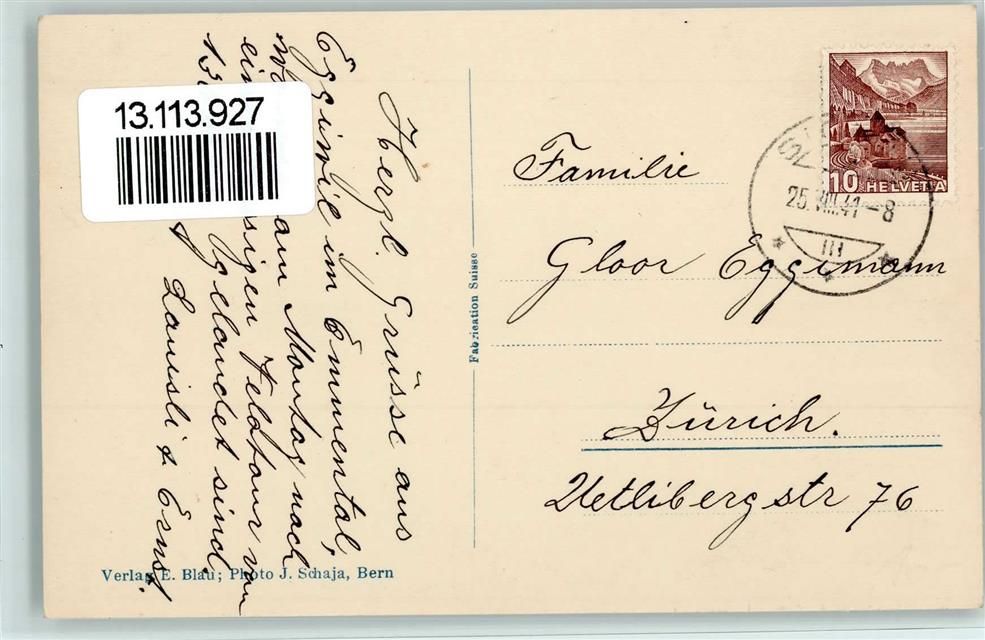 Herzl. Grüsse aus
Eggiwil im Emmental,
am Montag nach
sigen Veldtour von
gelandet sind.
Lauisli & Ernst.
13.113.927
Familie
Gloor Eggimann
Zürich.
Uetlibergstr 76
10 HELVETIA
25.VIII.41-8
Fabrication Suisse
Verlag E. Blau; Photo J. Schaja, Bern